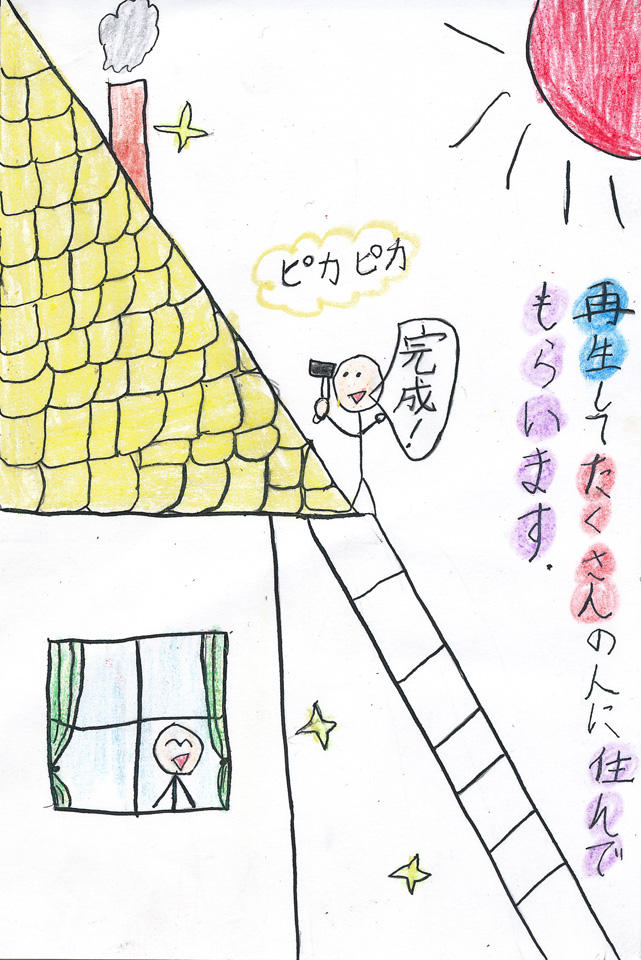 再生してたくさんの人に住んで
もらいます.
ピカピカ
完成!